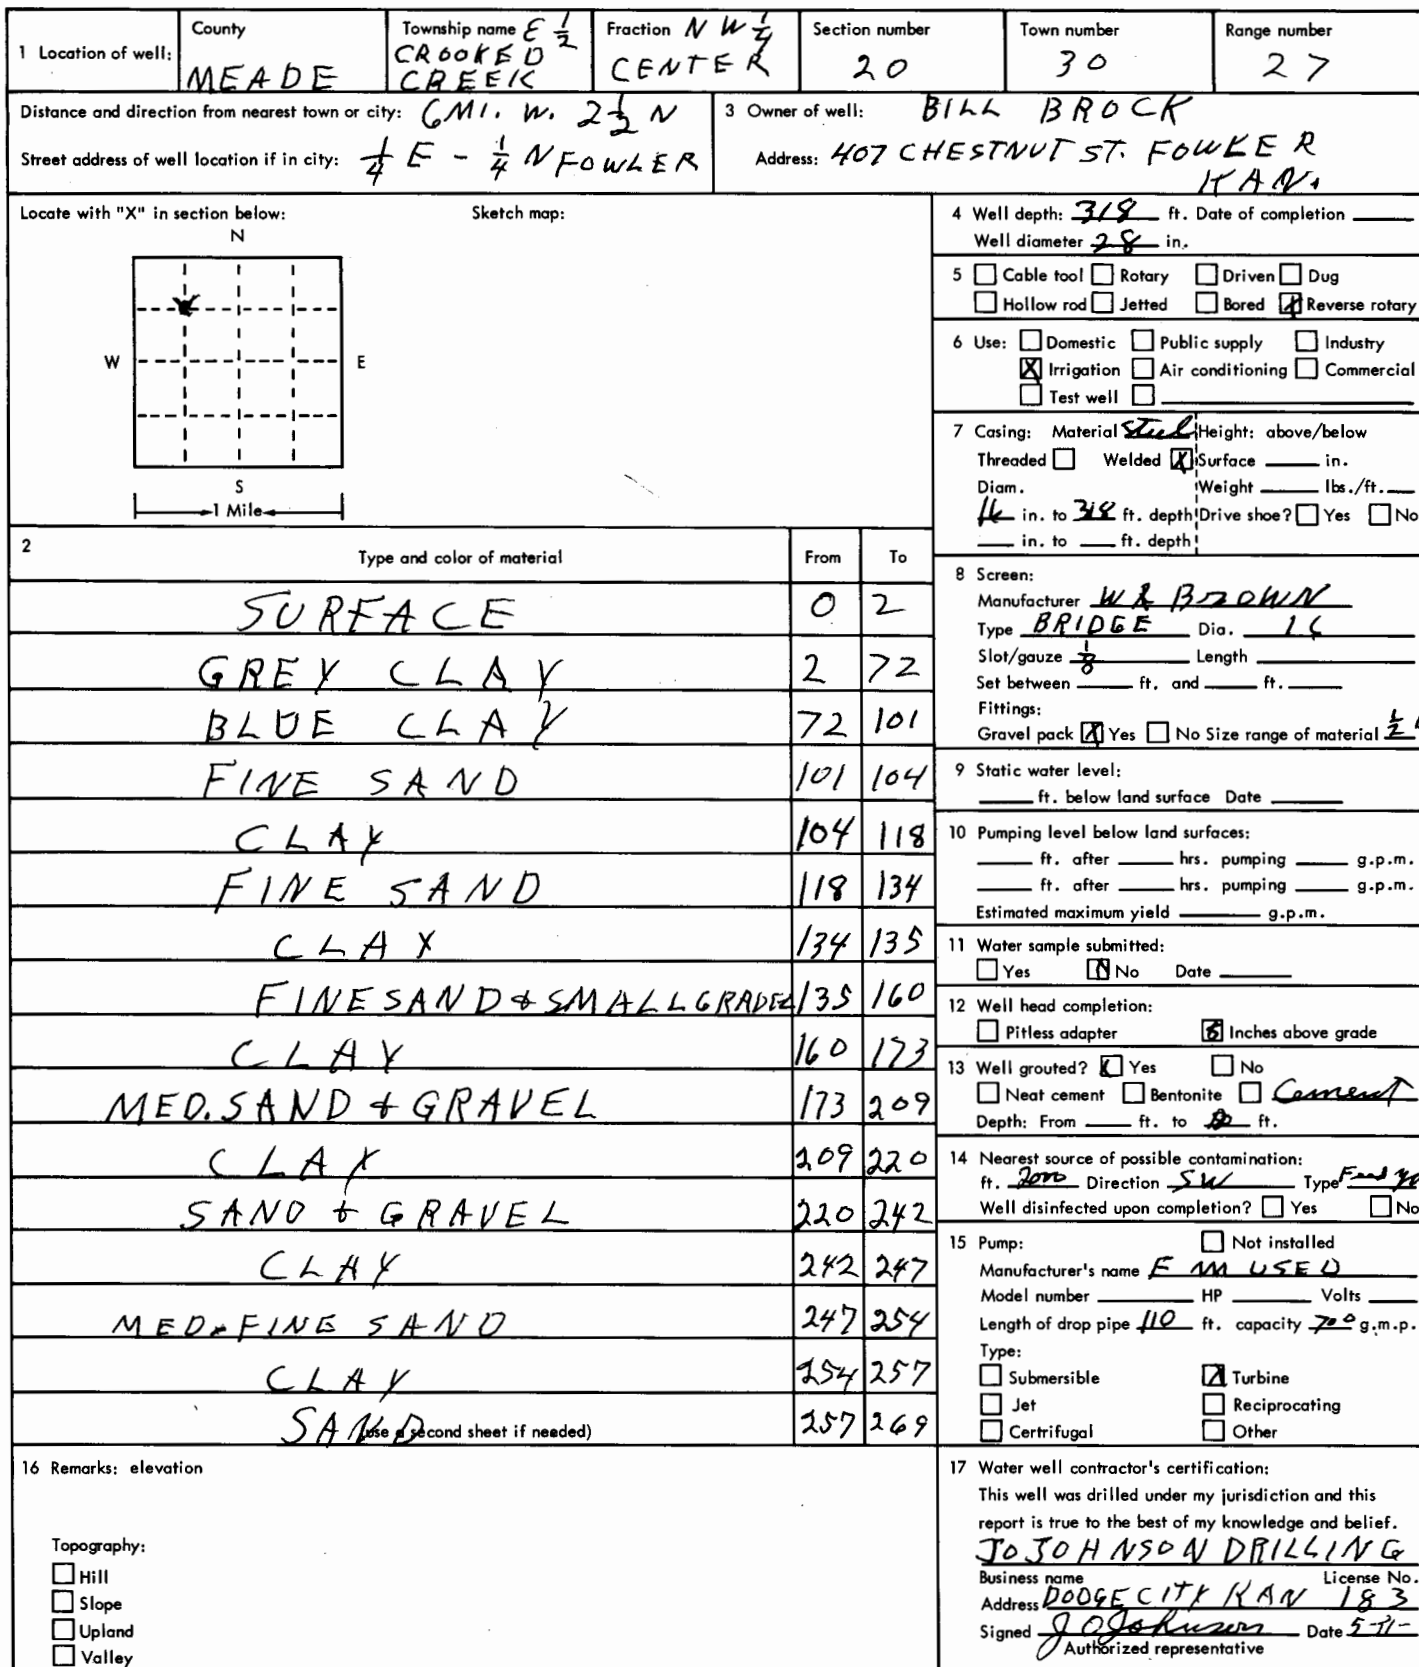 1 Location of well: County MEADE Township name E 1/2 CROOKED CREEK Fraction N W 1/4 CENTER Section number 20 Town number 30 Range number 27
Distance and direction from nearest town or city: 6MI. W. 2 1/2 N
Street address of well location if in city: 1/4 E - 1/4 N FOWLER
3 Owner of well: BILL BROCK
Address: 407 CHESTNUT ST. FOWLER
KAN.
Locate with "X" in section below: Sketch map:
N
W E
S
1 Mile
2 Type and color of material From To
SURFACE 0 2
GREY CLAY 2 72
BLUE CLAY 72 101
FINE SAND 101 104
CLAY 104 118
FINE SAND 118 134
CLAY 134 135
FINE SAND & SMALL GRAVEL 135 160
CLAY 160 173
MED. SAND & GRAVEL 173 209
CLAY 209 220
SAND & GRAVEL 220 242
CLAY 242 247
MED. FINE SAND 247 254
CLAY 254 257
SAND 257 269
(use a second sheet if needed)
4 Well depth: 318 ft. Date of completion
Well diameter 28 in.
5 Cable tool Rotary Driven Dug
Hollow rod Jetted Bored X Reverse rotary
6 Use: Domestic Public supply Industry
X Irrigation Air conditioning Commercial
Test well
7 Casing: Material Steel Height: above/below
Threaded Welded X Surface in.
Diam. Weight lbs./ft.
16 in. to 318 ft. depth Drive shoe? Yes No
in. to ft. depth
8 Screen:
Manufacturer W R BROWN
Type BRIDGE Dia. 16
Slot/gauze 1/8 Length
Set between ft. and ft.
Fittings:
Gravel pack X Yes No Size range of material 1/2
9 Static water level:
ft. below land surface Date
10 Pumping level below land surfaces:
ft. after hrs. pumping g.p.m.
ft. after hrs. pumping g.p.m.
Estimated maximum yield g.p.m.
11 Water sample submitted:
Yes No Date
12 Well head completion:
Pitless adapter Inches above grade
13 Well grouted? X Yes No
Neat cement Bentonite Cement
Depth: From ft. to ft.
14 Nearest source of possible contamination:
ft. 2000 Direction SW Type Feed
Well disinfected upon completion? Yes No
15 Pump: Not installed
Manufacturer's name F M USED
Model number HP Volts
Length of drop pipe 110 ft. capacity 700 g.m.p.
Type:
Submersible X Turbine
Jet Reciprocating
Certrifugal Other
16 Remarks: elevation
Topography:
Hill
Slope
Upland
Valley
17 Water well contractor's certification:
This well was drilled under my jurisdiction and this
report is true to the best of my knowledge and belief.
JO JOHNSON DRILLING
Business name License No.
Address DODGE CITY KAN 183
Signed J O Johnson Date
Authorized representative